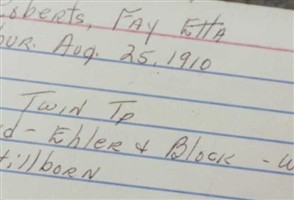 oberts, FAY EttA
our. Aug. 25, 1910
TWIN Tp
d - Ehler & Block - W
tillborn